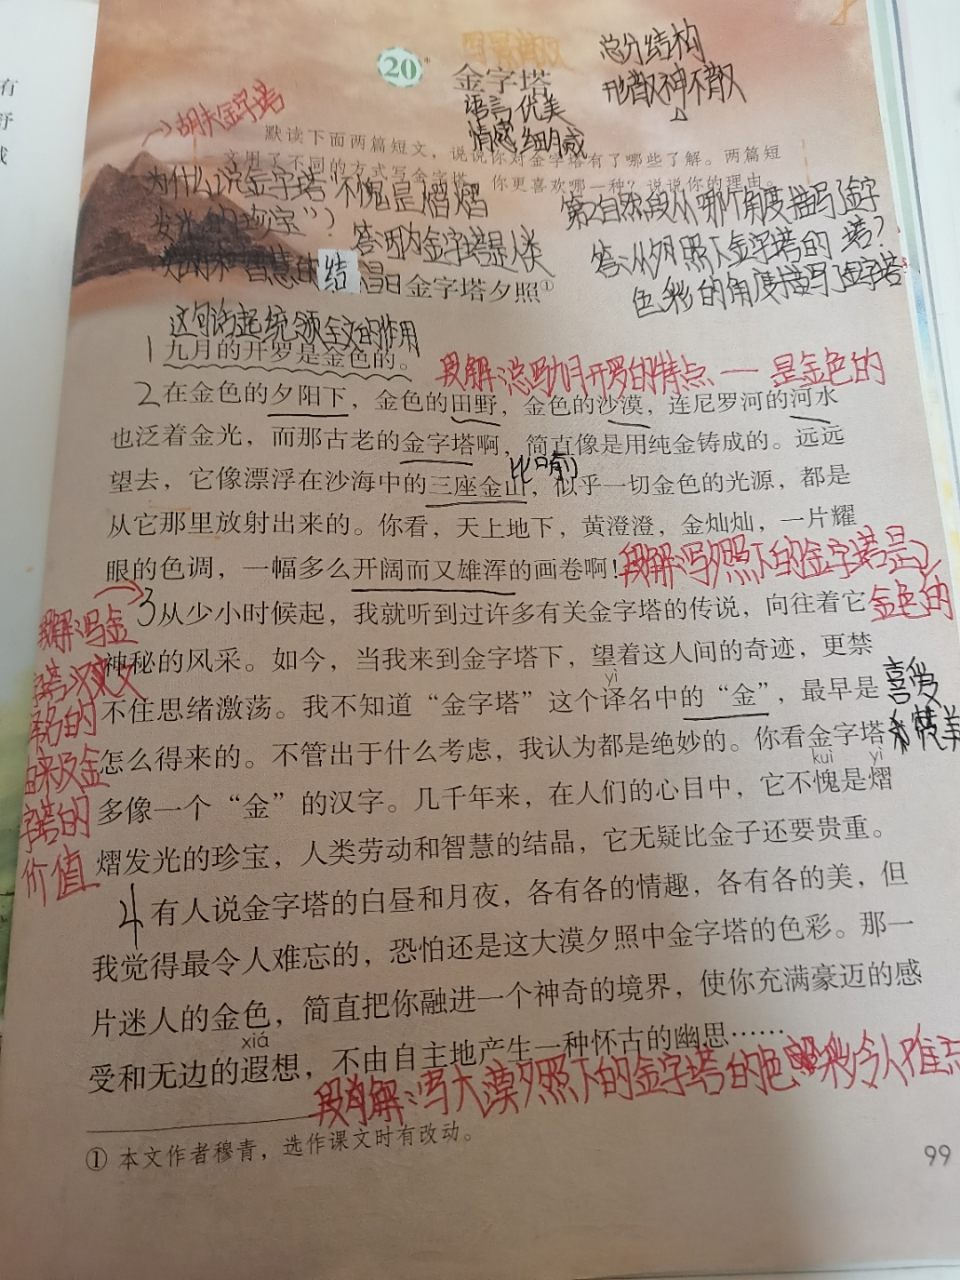 写景散文
总分结构
20*
金字塔
形散神不散
语言优美
→胡夫金字塔
情感细腻
默读下面两篇短文，说说你对金字塔有了哪些了解。两篇短
文用了不同的方式写金字塔，你更喜欢哪一种？说说你的理由。
为什么说金字塔“不愧是熠熠
发光的珍宝”？
答:因为金字塔是人类
劳动和智慧的结晶
第2自然段从哪个角度描写了金字
塔？
答:从夕照下金字塔的
色彩的角度描写了金字塔
金字塔夕照①
这句话起统领全文的作用
1九月的开罗是金色的。
段解:总写九月开罗的特点——是金色的
2在金色的夕阳下，金色的田野，金色的沙漠，连尼罗河的河水
也泛着金光，而那古老的金字塔啊，简直像是用纯金铸成的。远远
比喻
望去，它像漂浮在沙海中的三座金山，似乎一切金色的光源，都是
从它那里放射出来的。你看，天上地下，黄澄澄，金灿灿，一片耀
眼的色调，一幅多么开阔而又雄浑的画卷啊！
段解:写夕照下的金字塔是
金色的
3从少小时候起，我就听到过许多有关金字塔的传说，向往着它
神秘的风采。如今，当我来到金字塔下，望着这人间的奇迹，更禁
yì
不住思绪激荡。我不知道“金字塔”这个译名中的“金”，最早是
喜爱
和赞美
怎么得来的。不管出于什么考虑，我认为都是绝妙的。你看金字塔
kuì yì
多像一个“金”的汉字。几千年来，在人们的心目中，它不愧是熠
熠发光的珍宝，人类劳动和智慧的结晶，它无疑比金子还要贵重。
段解:写金
字塔汉文
译名的
由来及金
字塔的
价值
4有人说金字塔的白昼和月夜，各有各的情趣，各有各的美，但
我觉得最令人难忘的，恐怕还是这大漠夕照中金字塔的色彩。那一
片迷人的金色，简直把你融进一个神奇的境界，使你充满豪迈的感
xiá
受和无边的遐想，不由自主地产生一种怀古的幽思……
段解:写大漠夕照下的金字塔的色彩令人难忘
① 本文作者穆青，选作课文时有改动。
99